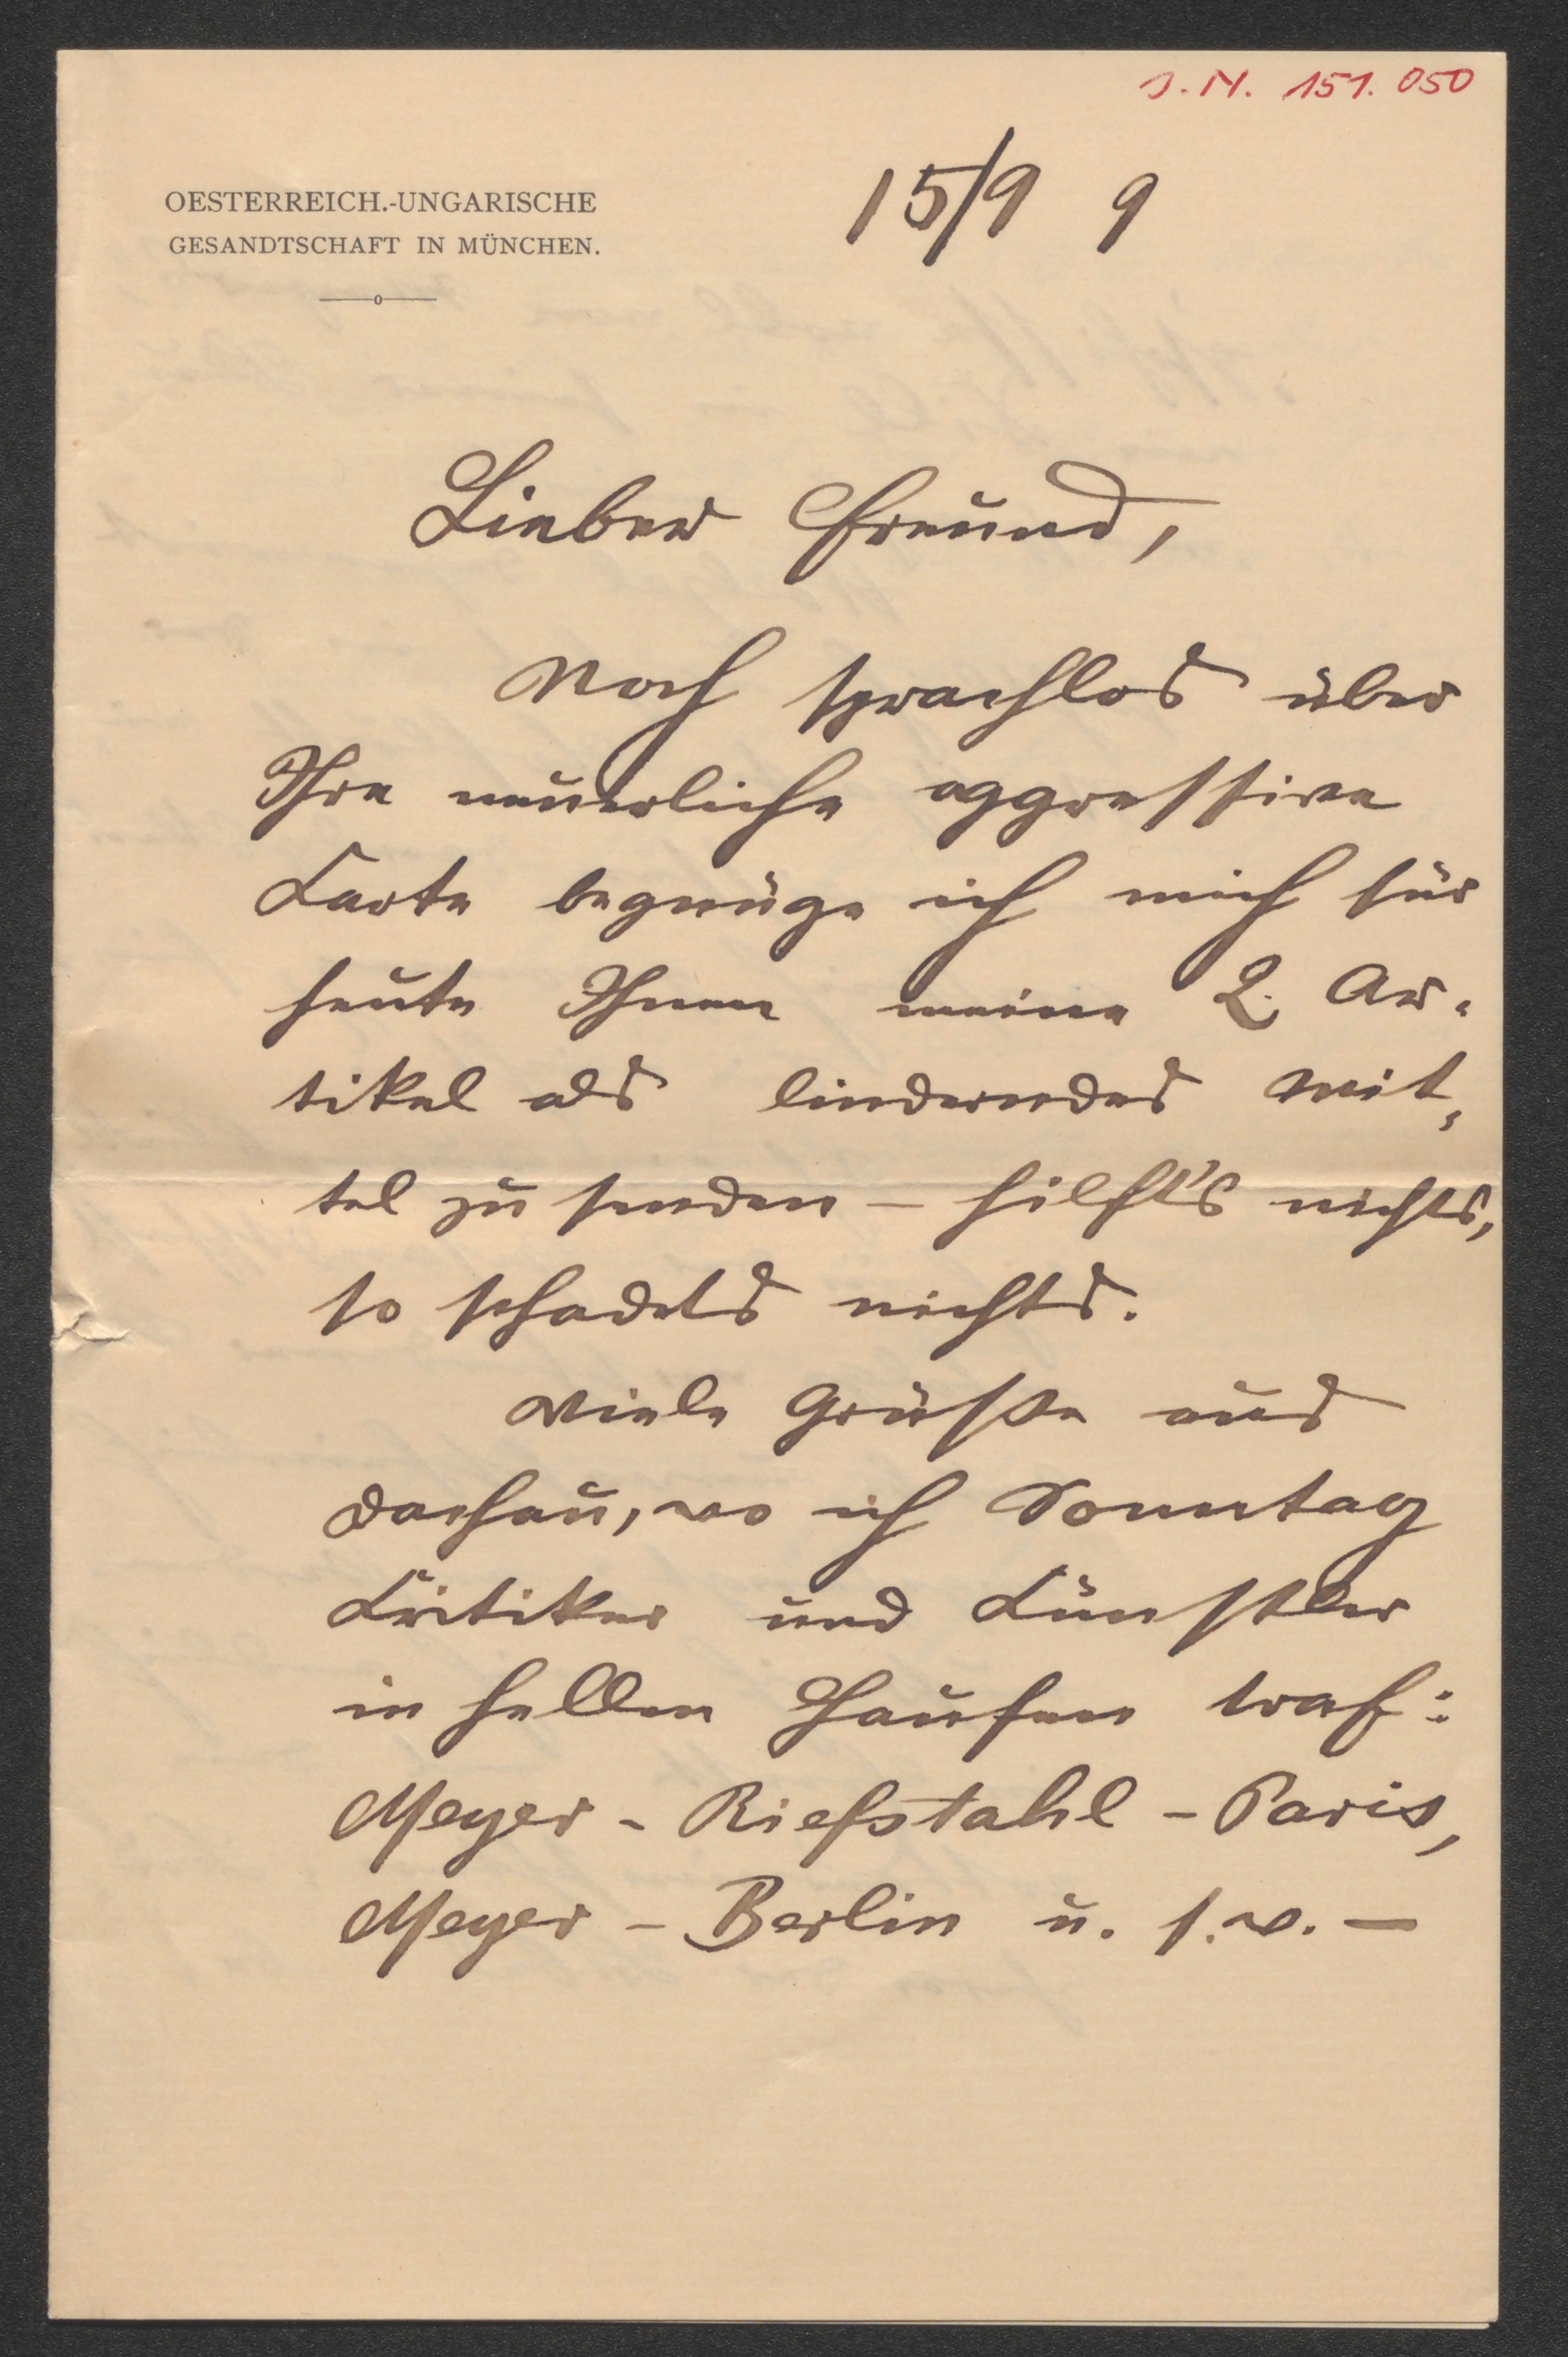 J. N. 151.050
OESTERREICH.-UNGARISCHE
GESANDTSCHAFT IN MÜNCHEN.
15/9 9
Lieber Freund,
Noch sprachlos über
Ihre neuerliche aggressive
Karte begnüge ich mich für
heute Ihnen meine 2. Ar-
tikel als linderndes Mit-
tel zu senden – hilft's nichts,
so schadets nichts.
Viele Grüße aus
Dachau, wo ich Sonntag
Kritiker und Künstler
in hellen Haufen traf:
Meyer - Riefstahl - Paris,
Meyer - Berlin u. s. w. –